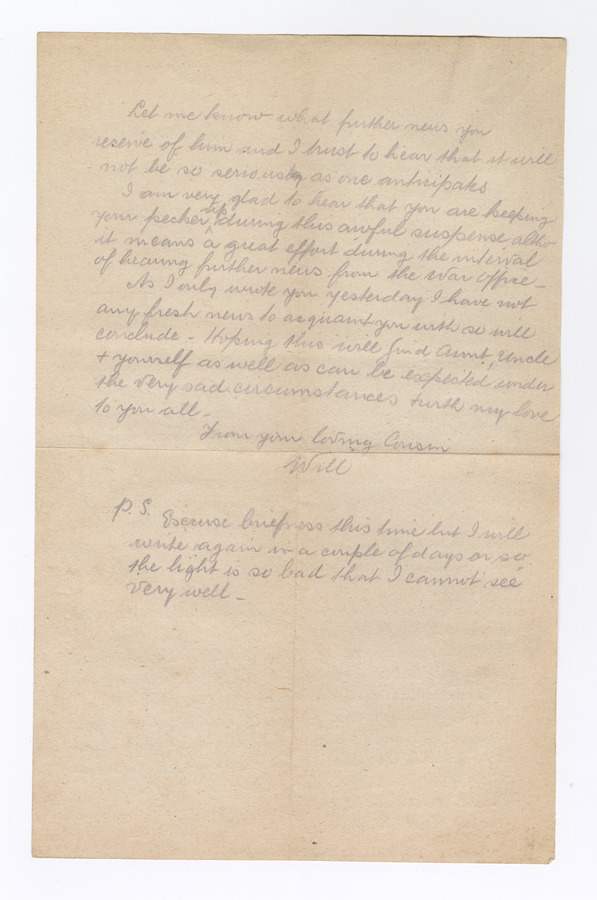 Let me know what further news you
reseive of him and I trust to hear that it will
not be so seriously as one anticipats
I am very glad to hear that you are keeping
your pecker up during this awful suspense altho
it means a great effort during the interval
of hearing further news from the War Office -
As I only wrote you yesterday I have not
any fresh news to acquiant you with so will
conclude - Hoping this will find Aunt, Uncle
+ yourself as well as can be expected under
the very sad circumstances + with my love
to you all -
From your loving Cousin
Will
P.S. Excuse briefness this time but I will
write again in a couple of days or so
the light is so bad that I cannot see
very well -